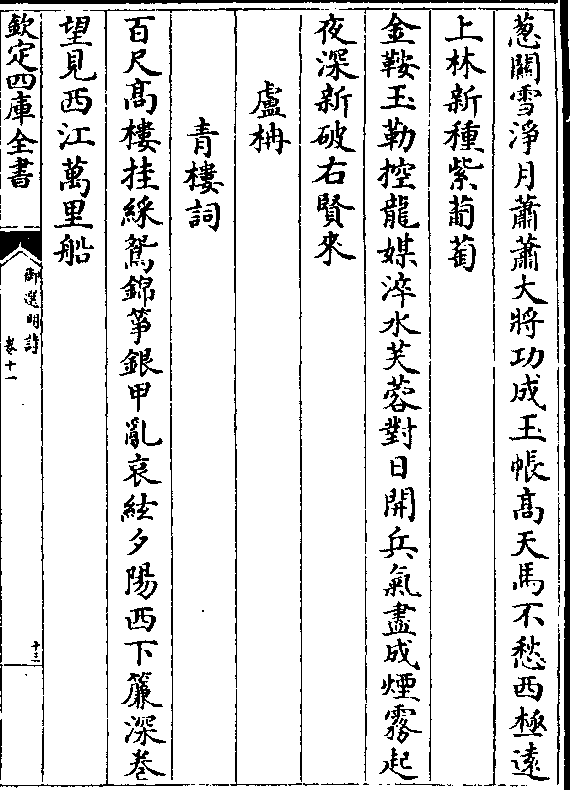 葱關雪淨月蕭蕭大將功成玉帳高天馬不愁西極遠
上林新種紫葡萄
金鞍玉勒控龍媒淬水芙蓉對日開兵氣盡成煙霧起
夜深新破右賢來
盧柟
青樓詞
百尺高樓挂綵鴛錦箏銀甲亂哀絃夕陽西下簾深卷
望見西江萬里船
欽定四庫全書
御選明詩
卷十一
十三